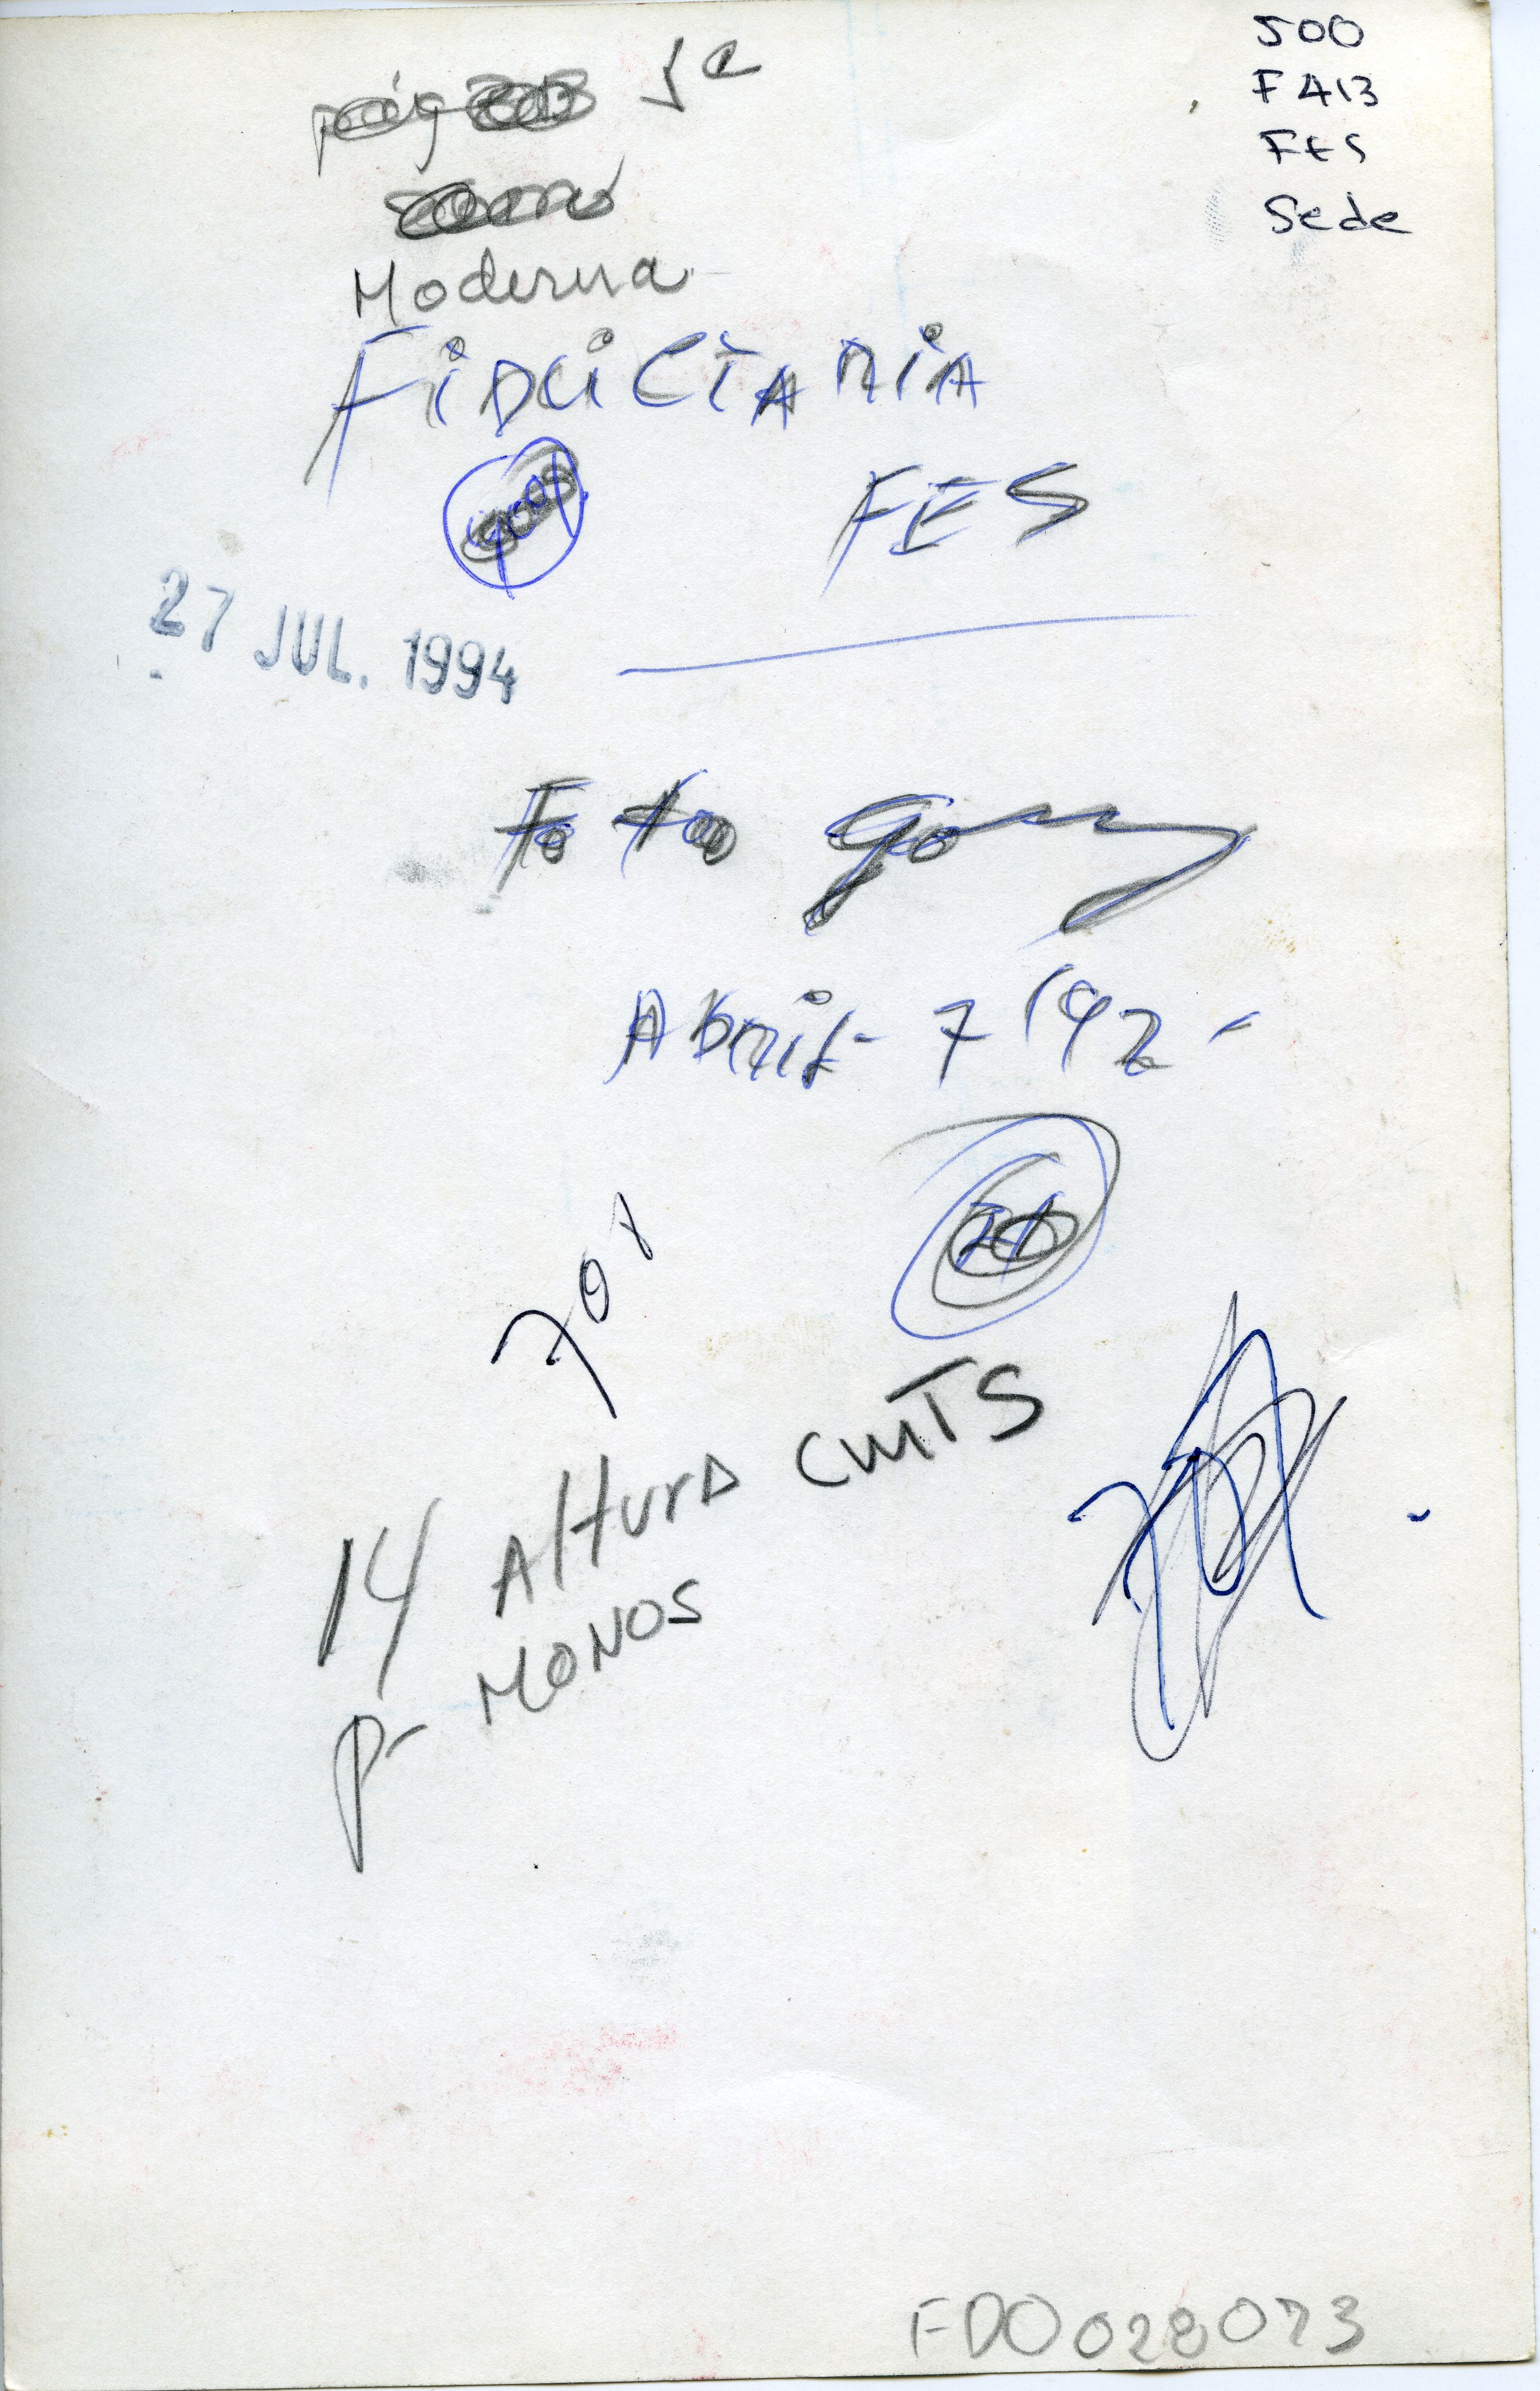 500
F413
FES
Sede
pág 5a
Moderna
FiDUCIARIA
FES
27 JUL. 1994
Foto
Abril- 7/92-
701
14 Altura CMTS
P- MONOS
FDO028073